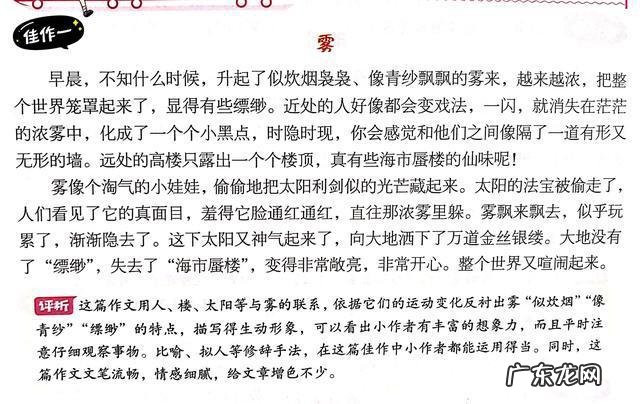 佳作一
雾
早晨，不知什么时候，升起了似炊烟袅袅、像青纱飘飘的雾来，越来越浓，把整
个世界笼罩起来了，显得有些缥缈。近处的人好像都会变戏法，一闪，就消失在茫茫
的浓雾中，化成了一个个小黑点，时隐时现，你会感觉和他们之间像隔了一道有形又
无形的墙。远处的高楼只露出一个个楼顶，真有些海市蜃楼的仙味呢！
雾像个淘气的小娃娃，偷偷地把太阳利剑似的光芒藏起来。太阳的法宝被偷走了，
人们看见了它的真面目，羞得它脸通红通红，直往那浓雾里躲。雾飘来飘去，似乎玩
累了，渐渐隐去了。这下太阳又神气起来了，向大地洒下了万道金丝银缕。大地没有
了“缥缈”，失去了“海市蜃楼”，变得非常敞亮，非常开心。整个世界又喧闹起来。
评析 这篇作文用人、楼、太阳等与雾的联系，依据它们的运动变化反衬出雾“似炊烟”“像
青纱”“缥缈”的特点，描写得生动形象，可以看出小作者有丰富的想象力，而且平时注
意仔细观察事物。比喻、拟人等修辞手法，在这篇佳作中小作者都能运用得当。同时，这
篇作文文笔流畅，情感细腻，给文章增色不少。
广东龙网